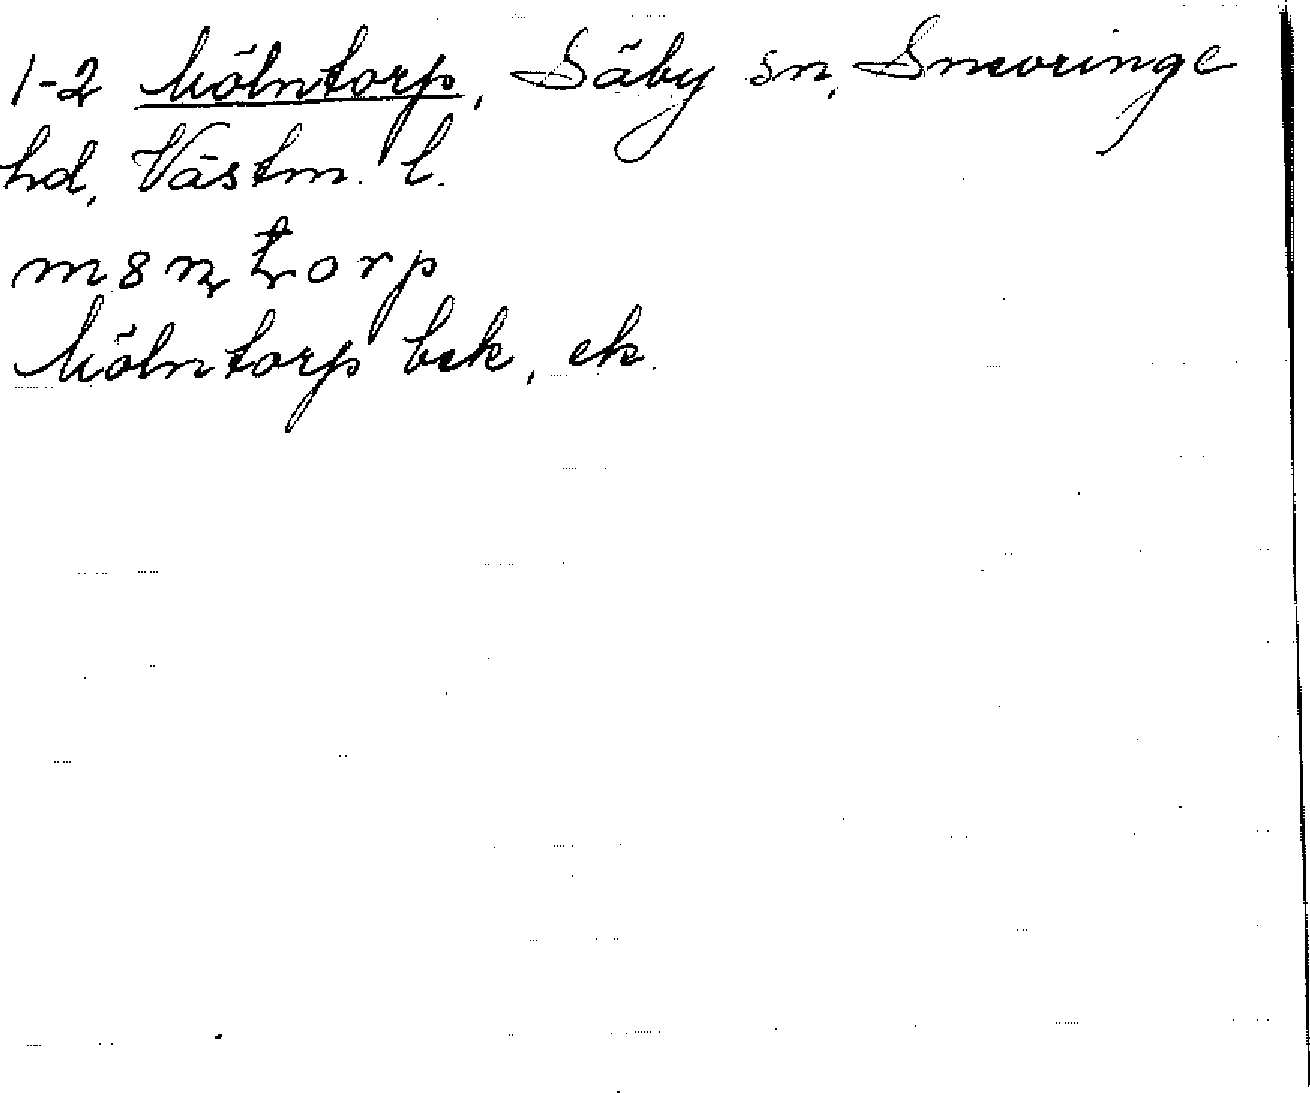 1-2 Mölntorp, Säby sn, Snevringe
hd, Västm. l.
Mölntorp bek, ek.